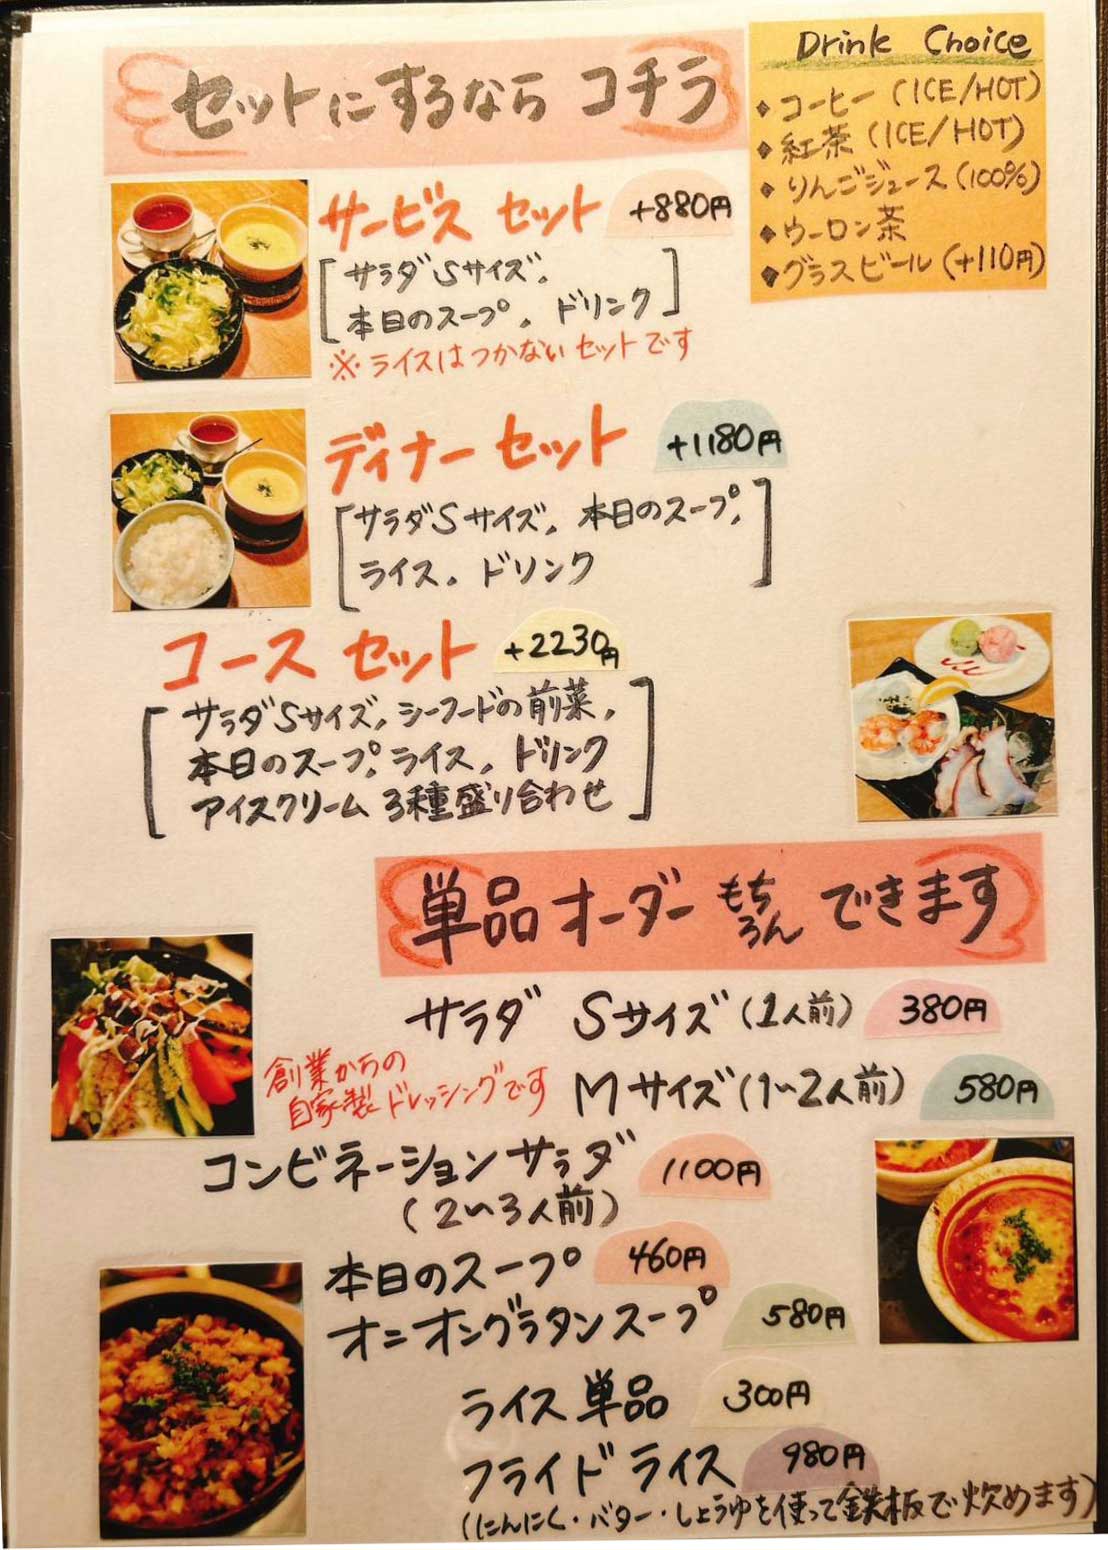 セットにするなら コチラ
Drink Choice
◆コーヒー (ICE/HOT)
◆紅茶 (ICE/HOT)
◆りんごジュース (100%)
◆ウーロン茶
◆グラスビール (+110円)
サービス セット +880円
[サラダSサイズ、
本日のスープ、ドリンク]
※ライスはつかないセットです
ディナー セット +1180円
[サラダSサイズ、本日のスープ、
ライス、ドリンク]
コース セット +2230円
[サラダSサイズ、シーフードの前菜、
本日のスープ、ライス、ドリンク
アイスクリーム 3種盛り合わせ]
単品オーダー もちろん できます
サラダ Sサイズ (1人前) 380円
創業からの
自家製ドレッシングです
Mサイズ (1〜2人前) 580円
コンビネーションサラダ 1100円
(2〜3人前)
本日のスープ 460円
オニオングラタンスープ 580円
ライス単品 300円
フライドライス 980円
(にんにく・バター・しょうゆを使って鉄板で炊めます)